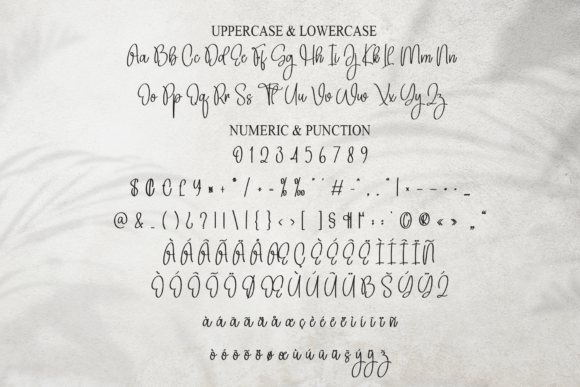 UPPERCASE & LOWERCASE
Aa Bb Cc Dd Ee Ff Gg Hh Ii Jj Kk Ll Mm Nn
Oo Pp Qq Rr Ss Tt Uu Vv Ww Xx Yy Zz
NUMERIC & PUNCTION
0 1 2 3 4 5 6 7 8 9
$ ₵ £ ¥ * + ° / ÷ - % ‰ " ' # ~ ^ , . | × – — _
@ & _ ( ) ¿ ? | | \ | { } < > [ ] § ¶ : ; © ® « » „ “
À Á Â Ã Ä Å Æ Ç È É Ê Ë Ì Í Î Ï Ñ
Ò Ó Ô Õ Ö Ø Œ Ù Ú Û Ü ß Š Ý Ÿ Ž
à á â ã ä å æ ç è é ê ë ì í î ï ñ
ò ó ô õ ö ø œ ù ú û ü š ý ÿ ž